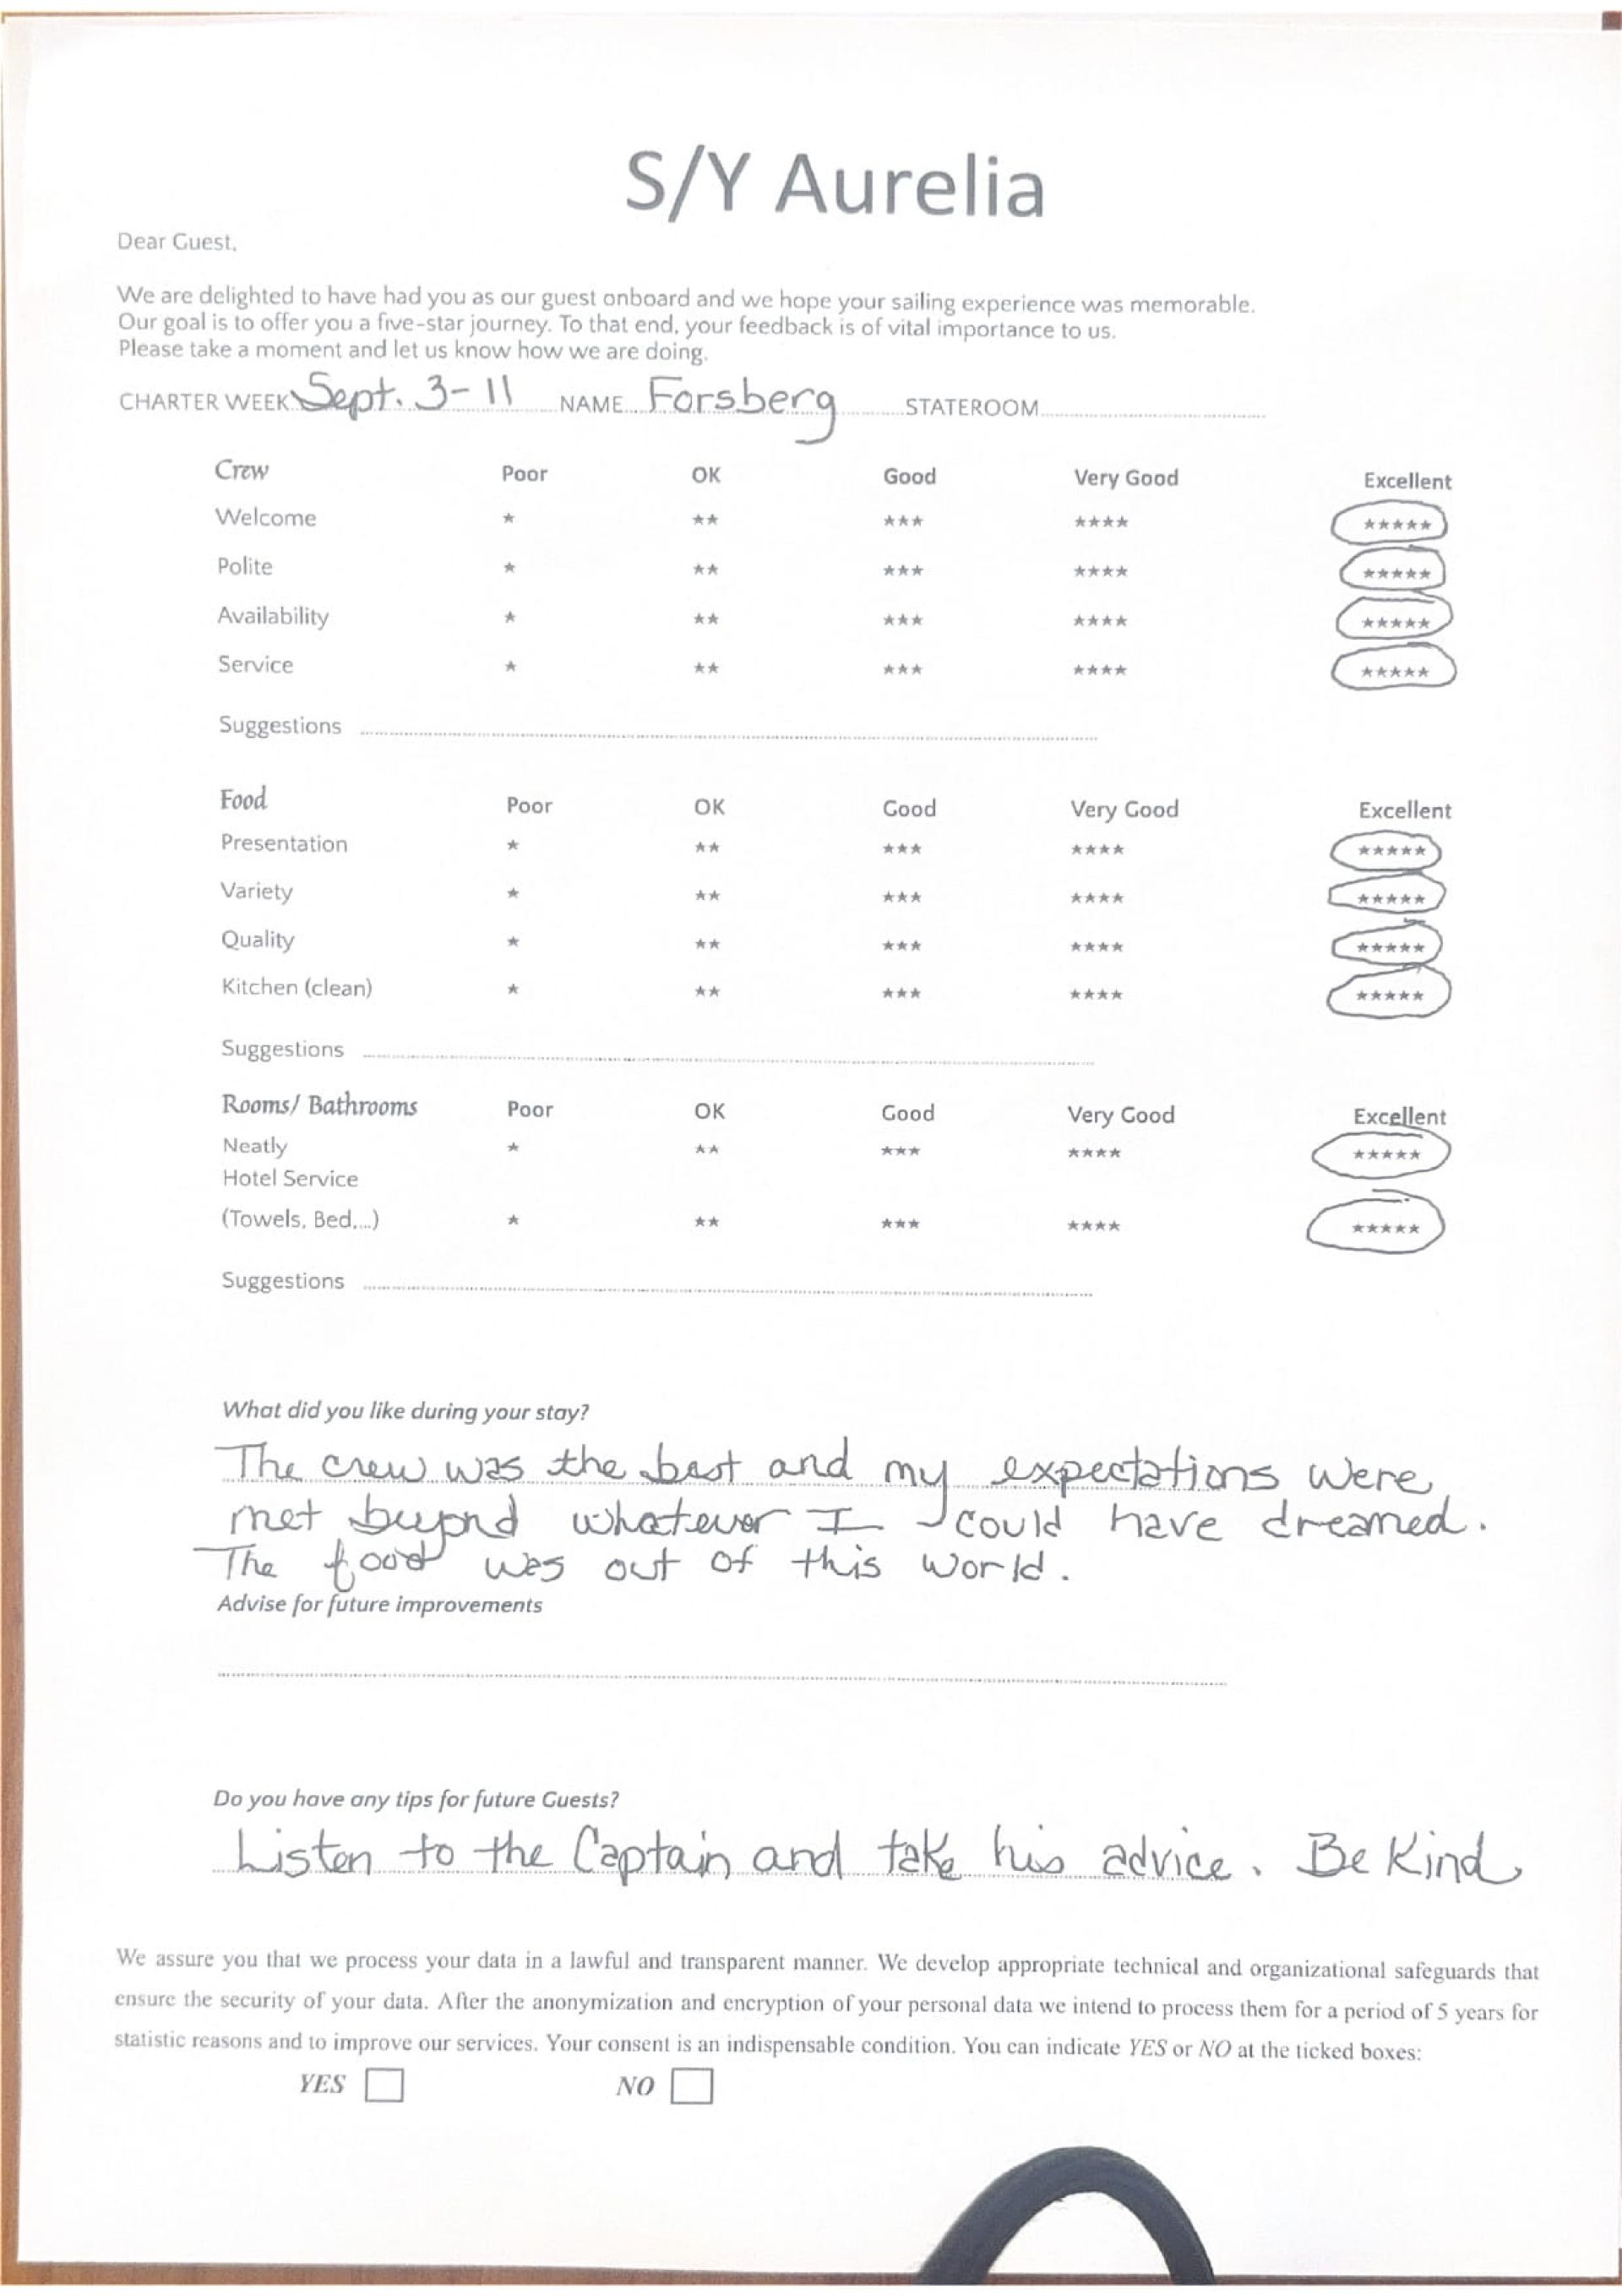 S/Y Aurelia
Dear Guest,
We are delighted to have had you as our guest onboard and we hope your sailing experience was memorable.
Our goal is to offer you a five-star journey. To that end, your feedback is of vital importance to us.
Please take a moment and let us know how we are doing.
CHARTER WEEK Sept. 3-11 NAME Forsberg STATEROOM
Crew Poor OK Good Very Good Excellent
Welcome ★ ★★ ★★★ ★★★★ ★★★★★
Polite ★ ★★ ★★★ ★★★★ ★★★★★
Availability ★ ★★ ★★★ ★★★★ ★★★★★
Service ★ ★★ ★★★ ★★★★ ★★★★★
Suggestions
Food Poor OK Good Very Good Excellent
Presentation ★ ★★ ★★★ ★★★★ ★★★★★
Variety ★ ★★ ★★★ ★★★★ ★★★★★
Quality ★ ★★ ★★★ ★★★★ ★★★★★
Kitchen (clean) ★ ★★ ★★★ ★★★★ ★★★★★
Suggestions
Rooms/ Bathrooms Poor OK Good Very Good Excellent
Neatly ★ ★★ ★★★ ★★★★ ★★★★★
Hotel Service
(Towels, Bed,...) ★ ★★ ★★★ ★★★★ ★★★★★
Suggestions
What did you like during your stay?
The crew was the best and my expectations were
met beyond whatever I could have dreamed.
The food was out of this world.
Advise for future improvements
Do you have any tips for future Guests?
Listen to the Captain and take his advice. Be Kind
We assure you that we process your data in a lawful and transparent manner. We develop appropriate technical and organizational safeguards that
ensure the security of your data. After the anonymization and encryption of your personal data we intend to process them for a period of 5 years for
statistic reasons and to improve our services. Your consent is an indispensable condition. You can indicate YES or NO at the ticked boxes:
YES NO